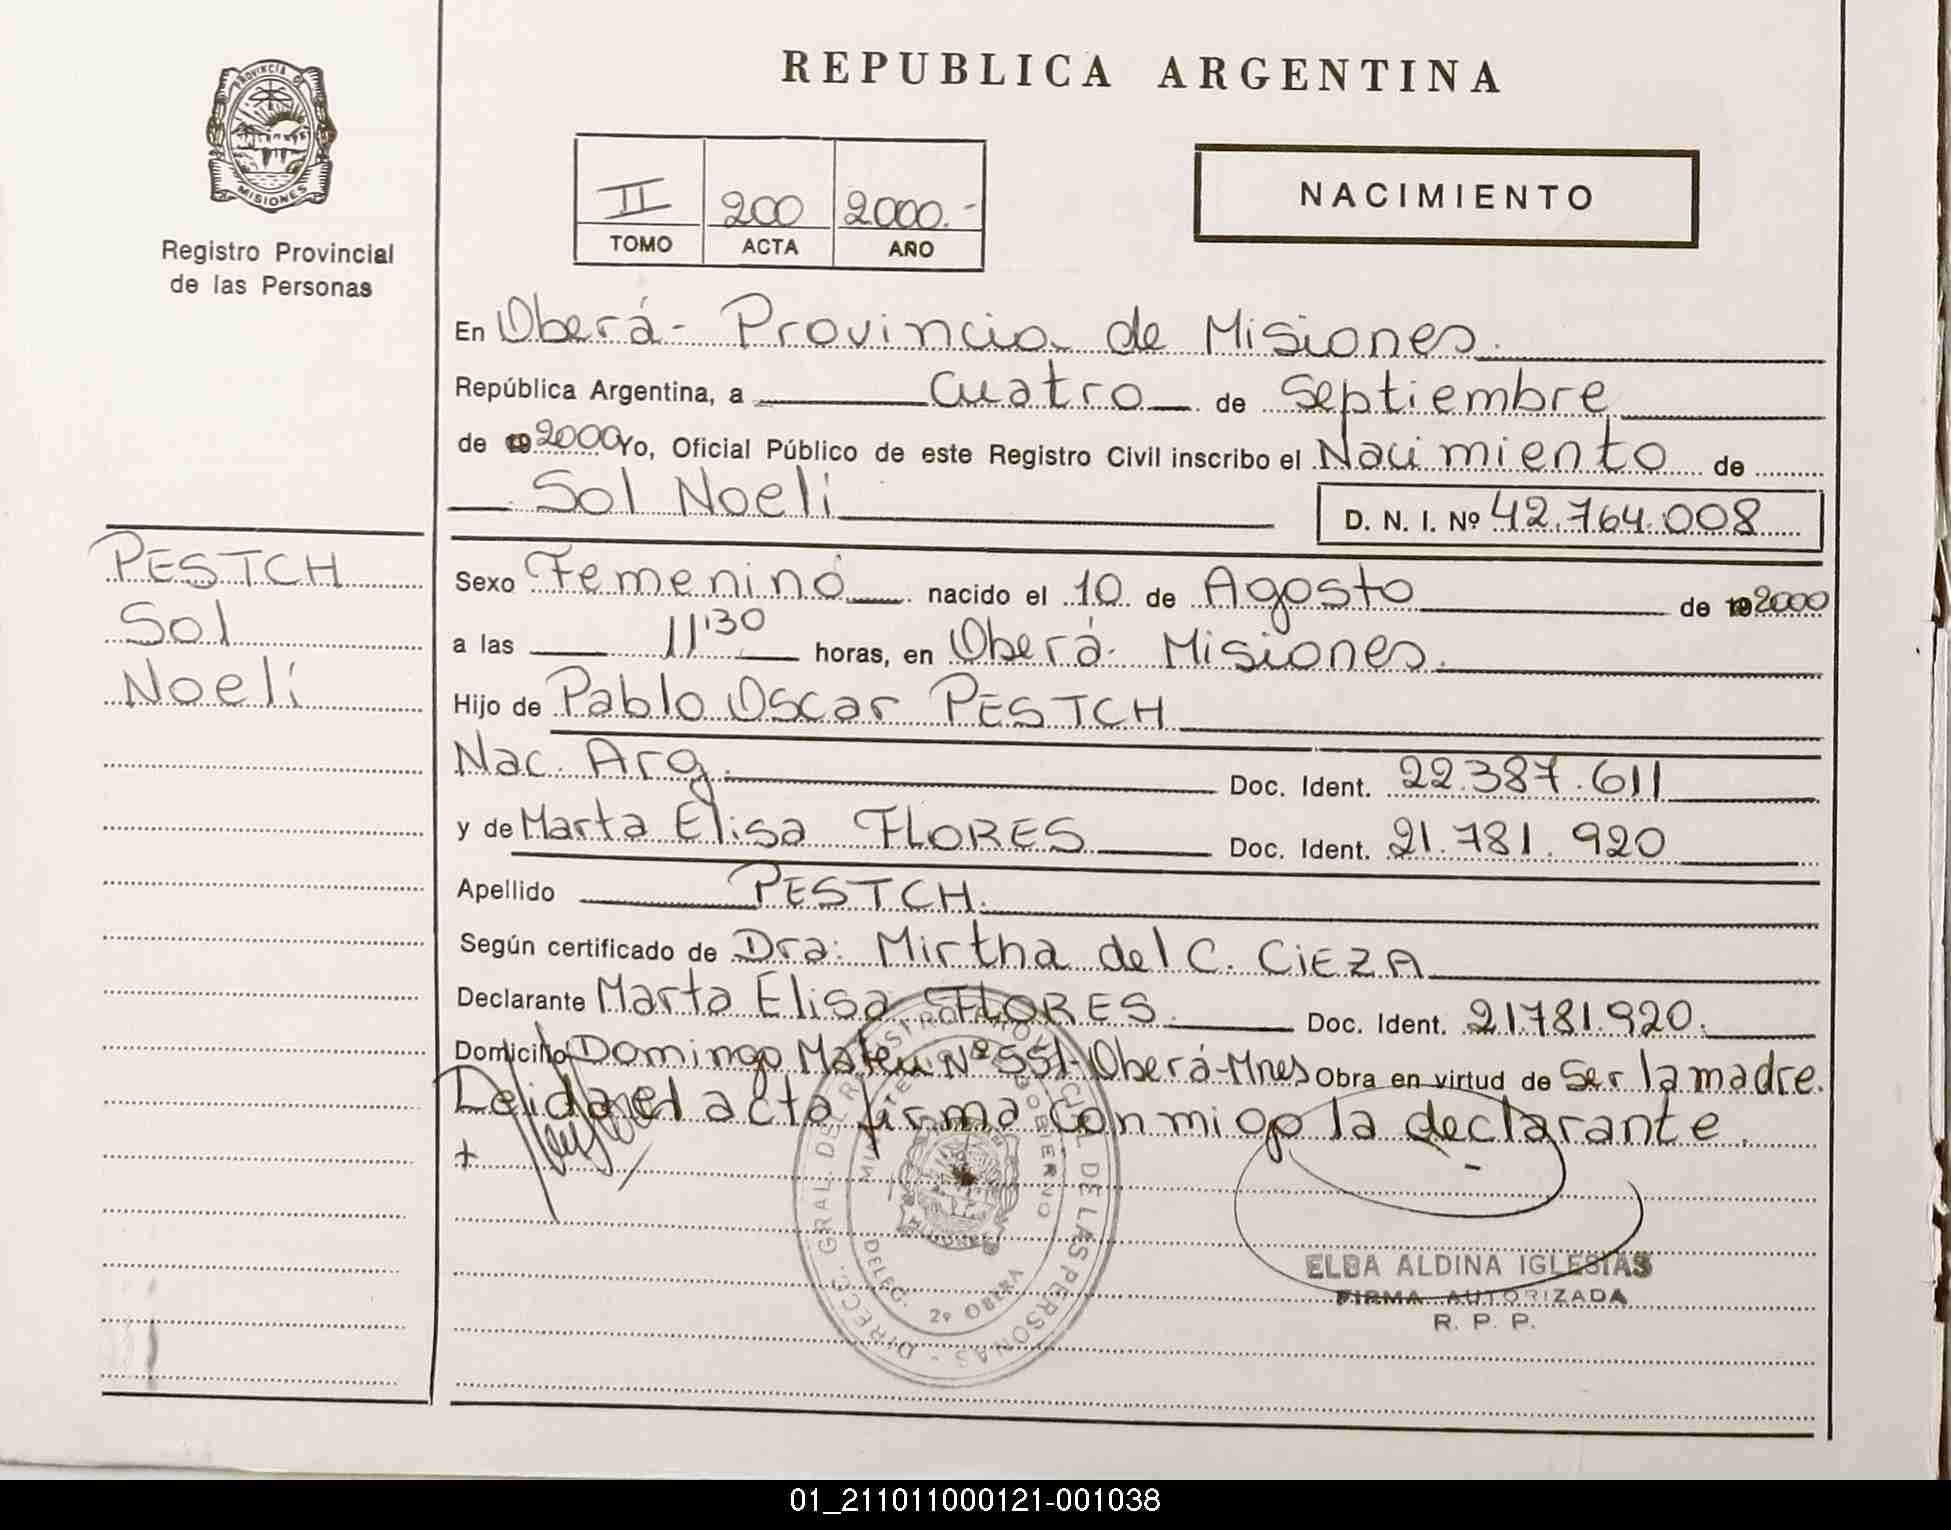 REPUBLICA ARGENTINA
PROVINCIA D
MISIONES
Registro Provincial
de las Personas
II 200 2000.-
TOMO ACTA AÑO
NACIMIENTO
En Oberá - Provincia de Misiones.
República Argentina, a cuatro de Septiembre
de 19 2000 Yo, Oficial Público de este Registro Civil inscribo el Nacimiento de
Sol Noelí
D. N. I. Nº 42.764.008
PESTCH
Sol
Noelí
Sexo Femenino nacido el 10 de Agosto de 19 2000
a las 11'30 horas, en Oberá - Misiones.
Hijo de Pablo Oscar PESTCH
Nac. Arg. Doc. Ident. 22.387.611
y de Marta Elisa FLORES Doc. Ident. 21.781.920
Apellido PESTCH.
Según certificado de Dra: Mirtha del C. CiEZA
Declarante Marta Elisa FLORES Doc. Ident. 21781.920.
Domicilio Domingo Mateu Nº 551-Oberá-Mnes Obra en virtud de Ser la madre.
Leida el acta firma conmigo la declarante.
+
DIRECC. GRAL. DEL REGISTRO PROVINCIAL DE LAS PERSONAS -
GOBIERNO
MISIONES
DELEG. 2º OBERA
ELBA ALDINA IGLESIAS
FIRMA AUTORIZADA
R. P. P.
01_211011000121-001038